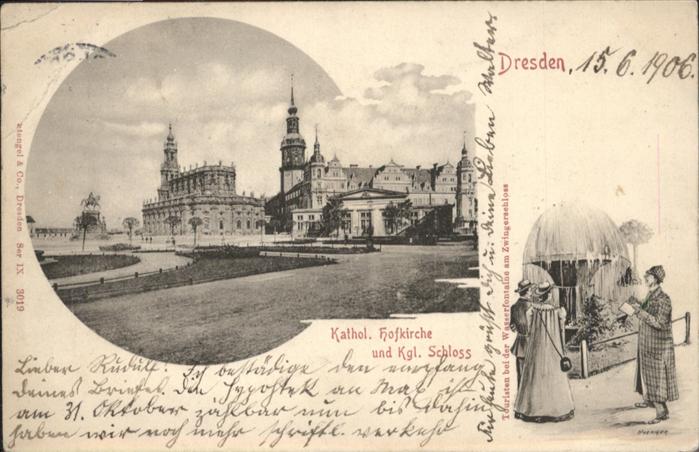 Dresden, 15. 6. 1906.
Stengel & Co., Dresden Ser IX. 3019
Kathol. Hofkirche
und Kgl. Schloss
Touristen bei der Wasserfontaine am Zwingerschloss
Lieber Rudolf! Ich bestädige den empfang
deines Briefes. Die Hypothek an Mai ist
am 31. Oktober zahlbar nun bis dahin
haben wir noch mehr schriftl. verkehr
grüßt dich u. deine Lieben Walter